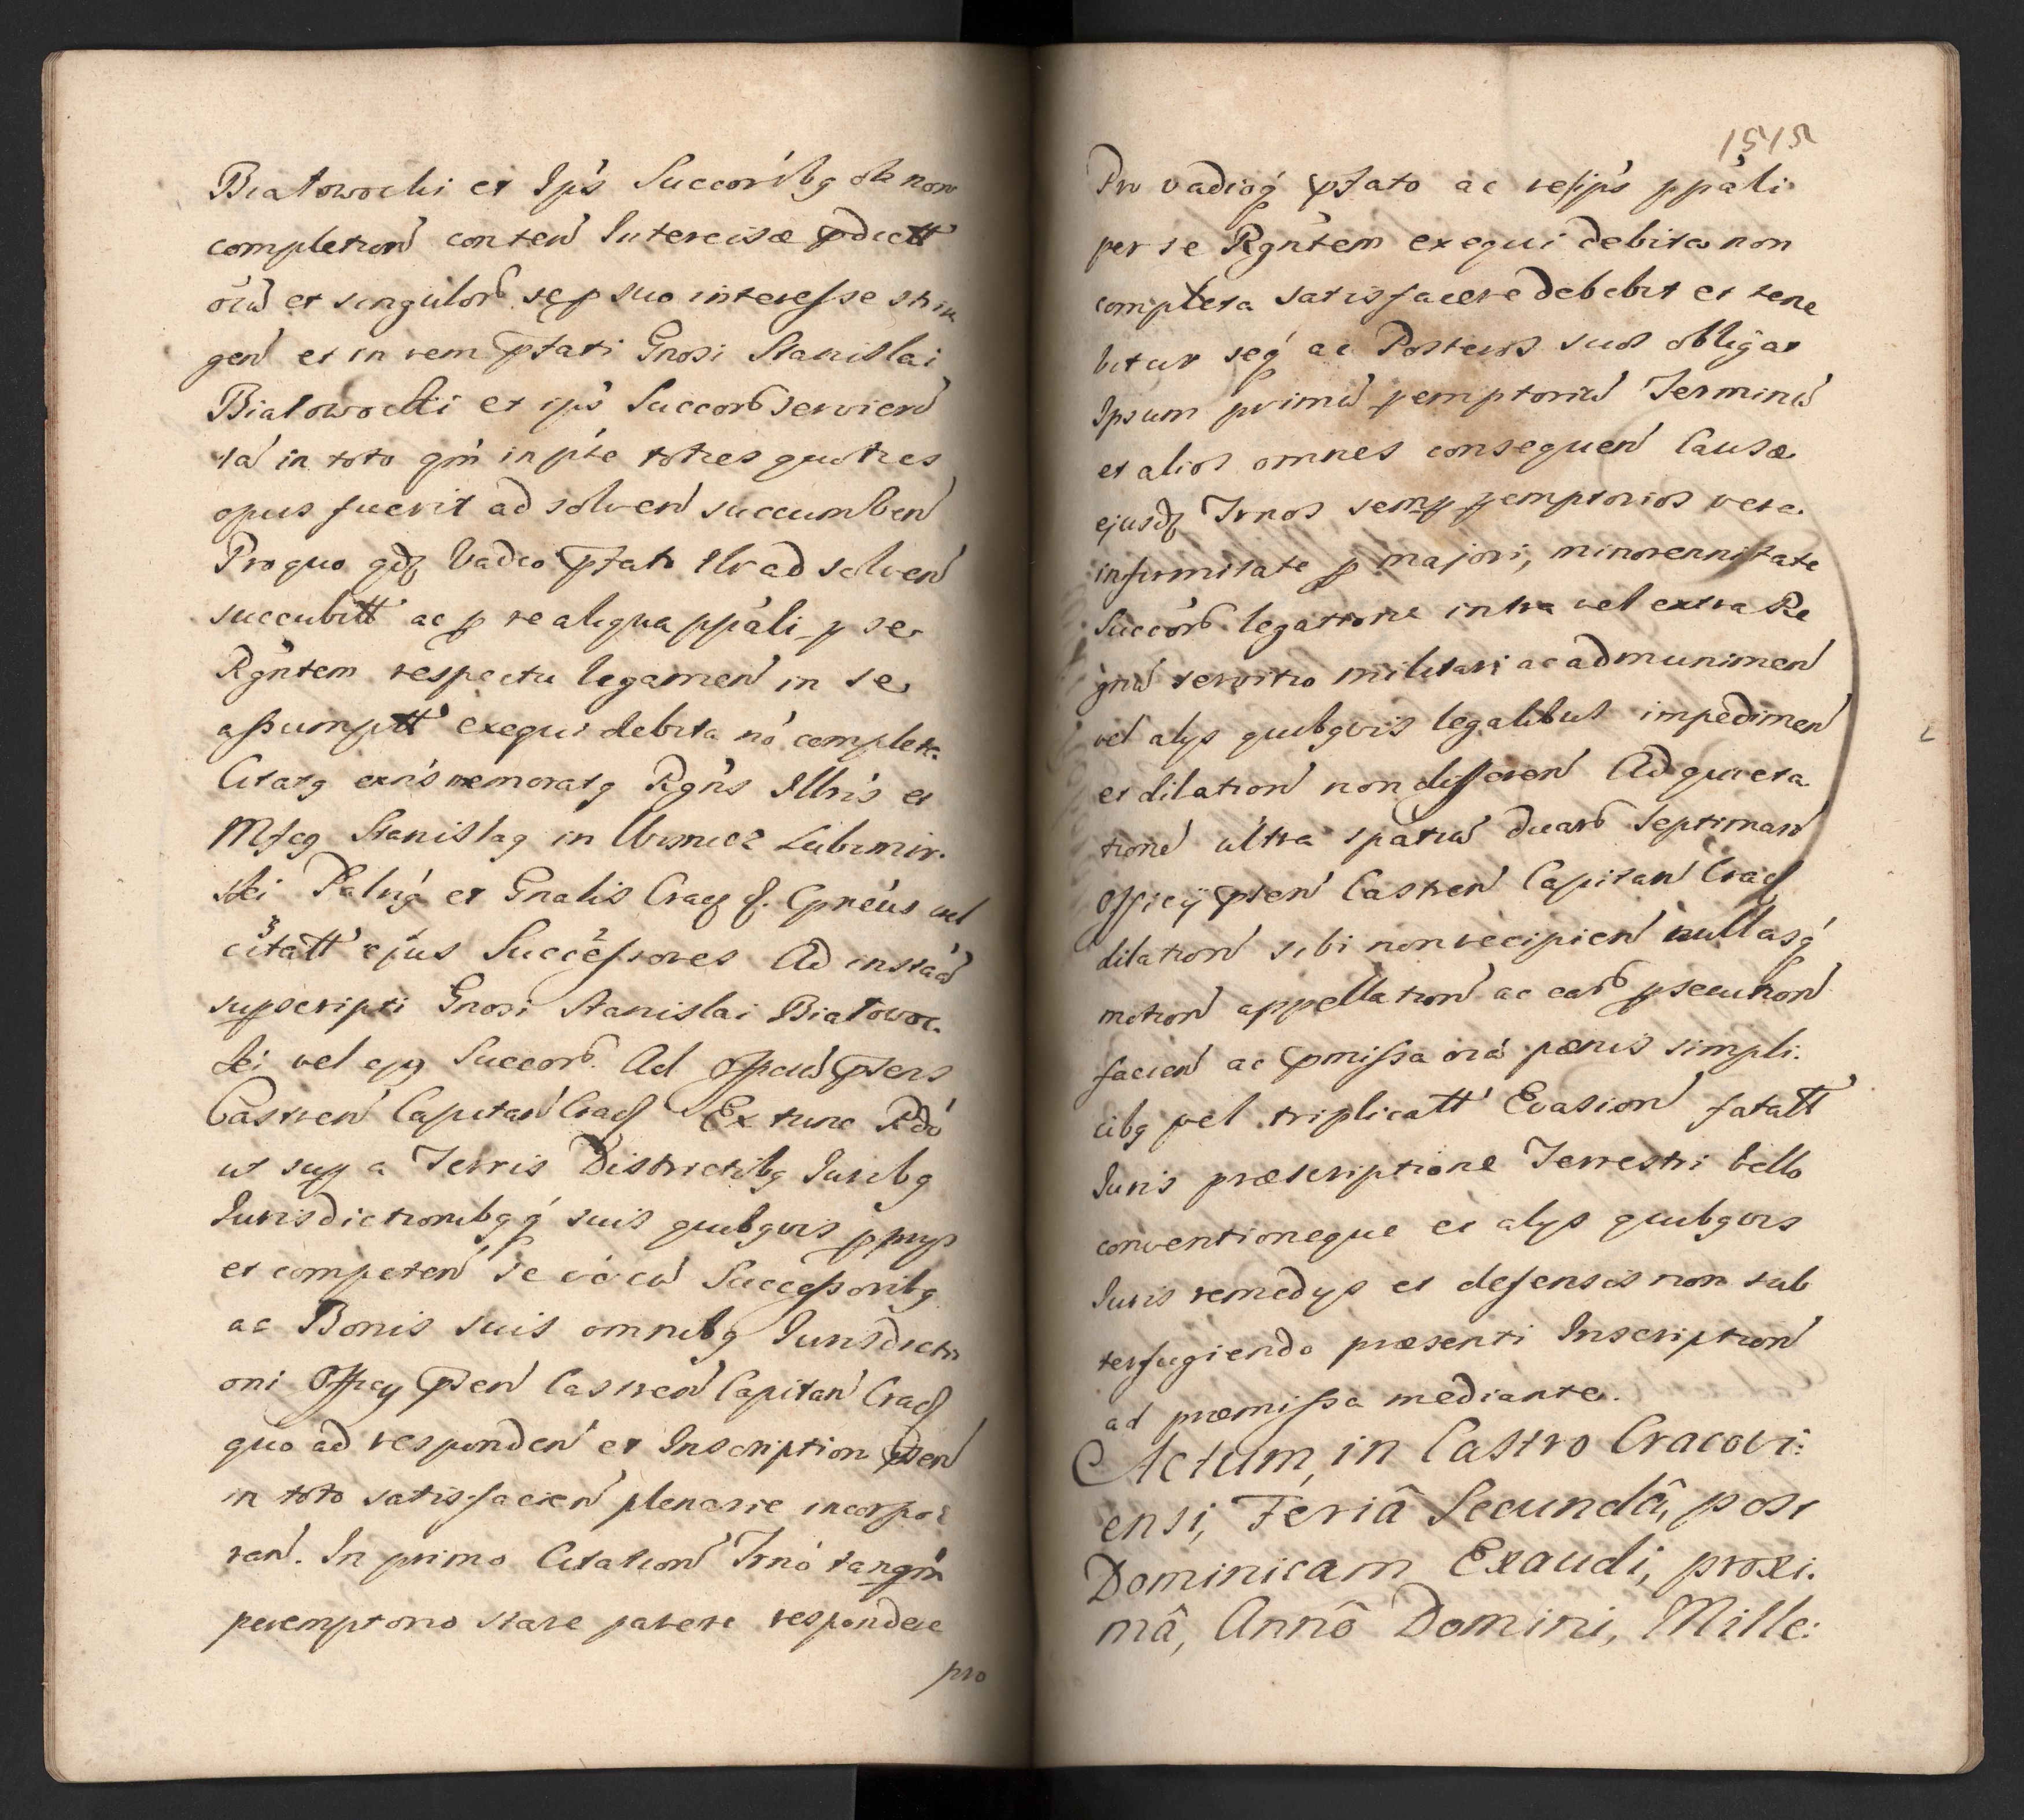 Białowocki et Ips Succoribg ob non
completion conten Intercisæ pdictt
oiu et singulor se p suo interesse strin
gen et in rem pfati Gnosi Stanislai
Białowocki et ips Succor servien
tā in toto qm in pte toties quoties
opus fuerit ad solven succumben
Pro quo qdz Vadio pfato Ilr ad solven
succubitt ac p re aliqua ppali p se
Rgntem respectu legamen in se
assumptt exequi debita nō completa
Citatg exns memoratg Rgns Illris et
Mfcg Stanislag in Wisnicz Lubomir-
ski Palnq et Gnalis Cracz C. Cpneus vel
citatt ejus Successores Ad instaā
supscripti Gnosi Stanislai Białowoc-
ki vel ejg Succor. Ad Offciū pters
Castren Capitan Crac Ex tunc Rdo
ut sup a Terris Districtibg Juribg
Jurisdictionibgq suis quibgvis ppriys
et competen se unacū Successoribg
ac Bonis suis omnibg Jurisdicti
oni Officy pten Castren Capitan Crac
quo ad responden et Inscription pten
in toto satisfacien plenarie incorpo-
ran. In primo Citation Trno tanqm
peremptorio stare parere respondere
pro
1515
Pro vadioq pfato ac re ips ppali
per se Rgntem exequi debita non
completa satisfacere debebit et tene
bitur seq ac Posteros suos obligat
Ipsum primū pemptoriū Terminū
et alios omnes consequen Causæ
ejusdz Trnos semp pemptorios vera
infirmitate p majori, minorennitate
Succor legatione intra vel extra Re
gnū servitio militari ac ad munimen
vel alys quibgvis legalibus impedimen
et dilation non differen Ad quieta
tione ultra spatiū duar Septiman
Officÿ pten Castren Capitan Crac
dilation sibi non recipien nullasq
motion appellation ac ear psecution
facien ac pmissa oiā pænis simpli-
cibg vel triplicatt Evasion fatatt
Juris præscriptione Terrestri bello
conventioneque et alys quibgvis
Juris remedys et defensis non sub
terfugiendo præsenti Inscription
ad præmissa mediante.
Actum, in Castro Cracovi:
ensi, Feriâ Secundâ, post
Dominicam Exaudi, proxi:
mâ, Annô Domini, Mille: